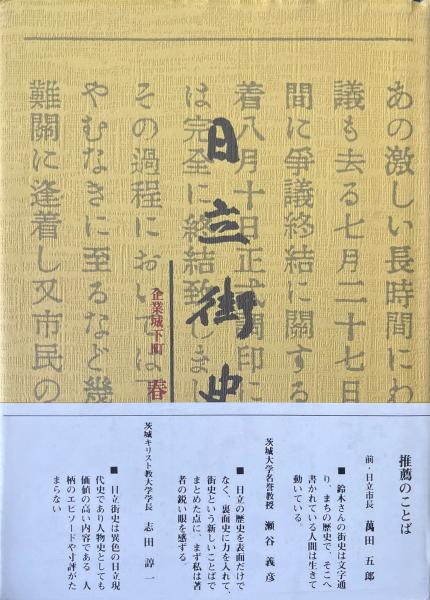 あの激しい長時間にわ
議も去る七月二十七日
間に爭議終結に關する
着八月十日正式調印に
は完全に終結致しまし
その過程において
やむなきに至るなど幾
難關に逢着し又市民の
日立街史
企業城下町
春
推薦のことば
前・日立市長 萬田五郎
■鈴木さんの街史は文字通
り、まちの歴史で、そこへ
書かれている人間は生きて
動いている。
茨城大学名誉教授 瀬谷義彦
■日立の歴史を表面だけで
なく、裏面史に力を入れて、
街史という新しいことばで
まとめた点に、まず私は著
者の鋭い眼を感ずる。
茨城キリスト教大学学長 志田諄一
■日立街史は異色の日立現
代史であり人物史としても
価値の高い内容である。人
柄のエピソードや寸評がた
まらない